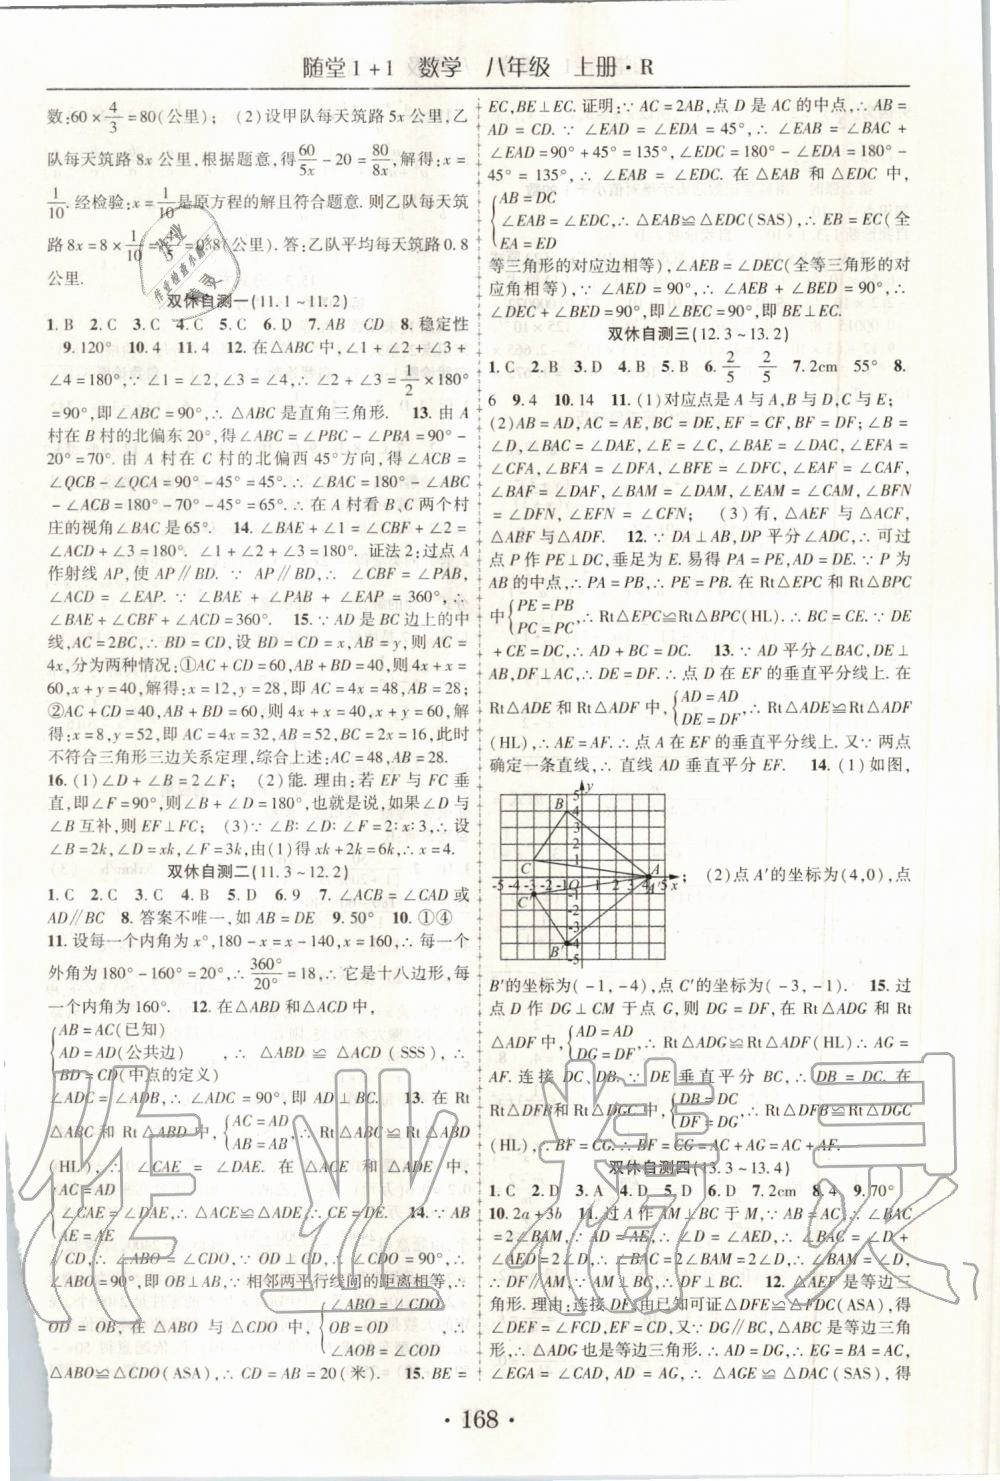 随堂1+1 数学 八年级 上册·R
数:60×4/3=80(公里); (2)设甲队每天筑路5x公里,乙
队每天筑路8x公里,根据题意,得60/5x-20=80/8x,解得:x=
1/10.经检验:x=1/10是原方程的解且符合题意.则乙队每天筑
路8x=8×1/10=4/5=0.8(公里).答:乙队平均每天筑路0.8
公里.
双休自测一(11.1~11.2)
1.B 2.C 3.C 4.C 5.C 6.D 7.AB CD 8.稳定性
9.120° 10.4 11.4 12.在△ABC中,∠1+∠2+∠3+
∠4=180°,∵∠1=∠2,∠3=∠4,∴∠2+∠3=1/2×180°
=90°,即∠ABC=90°,∴△ABC是直角三角形. 13.由A
村在B村的北偏东20°,得∠ABC=∠PBC-∠PBA=90°-
20°=70°.由A村在C村的北偏西45°方向,得∠ACB=
∠QCB-∠QCA=90°-45°=45°.∴∠BAC=180°-∠ABC
-∠ACB=180°-70°-45°=65°.∴在A村看B、C两个村
庄的视角∠BAC是65°. 14.∠BAE+∠1=∠CBF+∠2=
∠ACD+∠3=180°. ∠1+∠2+∠3=180°. 证法2:过点A
作射线AP,使AP∥BD.∵AP∥BD,∴∠CBF=∠PAB,
∠ACD=∠EAP.∵∠BAE+∠PAB+∠EAP=360°,∴
∠BAE+∠CBF+∠ACD=360°. 15.∵AD是BC边上的中
线,AC=2BC,∴BD=CD,设BD=CD=x,AB=y,则AC=
4x,分为两种情况:①AC+CD=60,AB+BD=40,则4x+x=
60,x+y=40,解得:x=12,y=28,即AC=4x=48,AB=28;
②AC+CD=40,AB+BD=60,则4x+x=40,x+y=60,解
得:x=8,y=52,即AC=4x=32,AB=52,BC=2x=16,此时
不符合三角形三边关系定理,综合上述:AC=48,AB=28.
16.(1)∠D+∠B=2∠F; (2)能.理由:若EF与FC垂
直,即∠F=90°,则∠B+∠D=180°,也就是说,如果∠D与
∠B互补,则EF⊥FC; (3)∵∠B:∠D:∠F=2:x:3,∴设
∠B=2k,∠D=xk,∠F=3k,由(1)得xk+2k=6k,∴x=4.
双休自测二(11.3~12.2)
1.C 2.C 3.C 4.B 5.D 6.9 7.∠ACB=∠CAD或
AD∥BC 8.答案不唯一,如AB=DE 9.50° 10.①④
11.设每一个内角为x°,180-x=x-140,x=160,∴每一个
外角为180°-160°=20°,∴360°/20°=18,∴它是十八边形,每
一个内角为160°. 12.在△ABD和△ACD中,
{AB=AC(已知)
AD=AD(公共边) ,∴△ABD≌△ACD(SSS),∴
BD=CD(中点的定义)
∠ADC=∠ADB,∴∠ADC=90°,即AD⊥BC. 13.在Rt
△ABC和Rt△ABD中,{AC=AD
AB=AB,∴Rt△ABC≌Rt△ABD
(HL),∴∠CAE=∠DAE.在△ACE和△ADE中,
{AC=AD
∠CAE=∠DAE,∴△ACE≌△ADE,∴CE=DE. 14.∵AB
AE=AE
∥CD,∴∠ABO=∠CDO,∵OD⊥CD,∴∠CDO=90°,∴
∠ABO=90°,即OB⊥AB,∵相邻两平行线间的距离相等,∴
OD=OB,在△ABO与△CDO中,{∠ABO=∠CDO
OB=OD ,∴
∠AOB=∠COD
△ABO≌△CDO(ASA),∴CD=AB=20(米). 15.BE=
EC,BE⊥EC.证明:∵AC=2AB,点D是AC的中点,∴AB=
AD=CD.∵∠EAD=∠EDA=45°,∴∠EAB=∠BAC+
∠EAD=90°+45°=135°,∠EDC=180°-∠EDA=180°-
45°=135°,∴∠EAB=∠EDC.在△EAB和△EDC中,
{AB=DC
∠EAB=∠EDC,∴△EAB≌△EDC(SAS),∴EB=EC(全
EA=ED
等三角形的对应边相等),∠AEB=∠DEC(全等三角形的对
应角相等),∵∠AED=90°,∴∠AEB+∠BED=90°,∴
∠DEC+∠BED=90°,∴∠BEC=90°,即BE⊥EC.
双休自测三(12.3~13.2)
1.C 2.B 3.D 4.B 5.B 6.2/5 2/5 7.2cm 55° 8.
6 9.4 10.14 11.(1)对应点是A与A,B与D,C与E;
(2)AB=AD,AC=AE,BC=DE,EF=CF,BF=DF;∠B=
∠D,∠BAC=∠DAE,∠E=∠C,∠BAE=∠DAC,∠EFA=
∠CFA,∠BFA=∠DFA,∠BFE=∠DFC,∠EAF=∠CAF,
∠BAF=∠DAF,∠BAM=∠DAM,∠EAM=∠CAM,∠BFN
=∠DFN,∠EFN=∠CFN; (3)有,△AEF与△ACF,
△ABF与△ADF. 12.∵DA⊥AB,DP平分∠ADC,∴可过
点P作PE⊥DC,垂足为E.易得PA=PE,AD=DE.∵P为
AB的中点,∴PA=PB,∴PE=PB.在Rt△EPC和Rt△BPC
中{PE=PB
PC=PC,∴Rt△EPC≌Rt△BPC(HL).∴BC=CE.∵DE
+CE=DC,∴AD+BC=DC. 13.∵AD平分∠BAC,DE⊥
AB,DF⊥AC,∴DF=DE.∴点D在EF的垂直平分线上.在
Rt△ADE和Rt△ADF中,{AD=AD
DE=DF,∴Rt△ADE≌Rt△ADF
(HL),∴AE=AF.∴点A在EF的垂直平分线上.又∵两点
确定一条直线,∴直线AD垂直平分EF. 14.(1)如图,
; (2)点A′的坐标为(4,0),点
B′的坐标为(-1,-4),点C′的坐标为(-3,-1). 15.过
点D作DG⊥CM于点G,则DG=DF,在Rt△ADG和Rt
△ADF中,{AD=AD
DG=DF,∴Rt△ADG≌Rt△ADF(HL).∴AG=
AF.连接DC、DB.∵DE垂直平分BC,∴DB=DC.在
Rt△DFB和Rt△DGC中,{DB=DC
DF=DG,∴Rt△DFB≌Rt△DGC
(HL),∴BF=CG.∴BF=CG=AC+AG=AC+AF.
双休自测四(13.3~13.4)
1.C 2.D 3.A 4.B 5.D 6.D 7.2cm 8.4 9.70°
10.2a+3b 11.过A作AM⊥BC于M,∵AB=AC,∴∠BAC
=2∠BAM,∵AD=AE,∴∠D=∠AED,∴∠BAC=∠D+
∠AED=2∠D,∴∠BAC=2∠BAM=2∠D,∴∠BAM=∠D,
∴DF∥AM,∵AM⊥BC,∴DF⊥BC. 12.△AEF是等边三
角形.理由:连接DF,由已知可证△DFE≌△FDC(ASA),得
∠DEF=∠FCD,EF=CD.又∵DG∥BC,△ABC是等边三角
形,∴△ADG也是等边三角形.∴AD=DG,∴EG=BA=AC,
∠EGA=∠CAD,AD=AG,∴△AGE≌△DAC(SAS),得
·168·